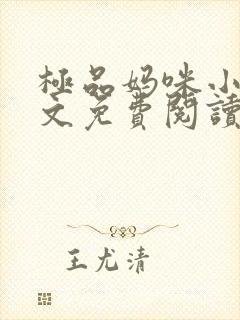 極品妈咪小
文免費閱讀
王尤清